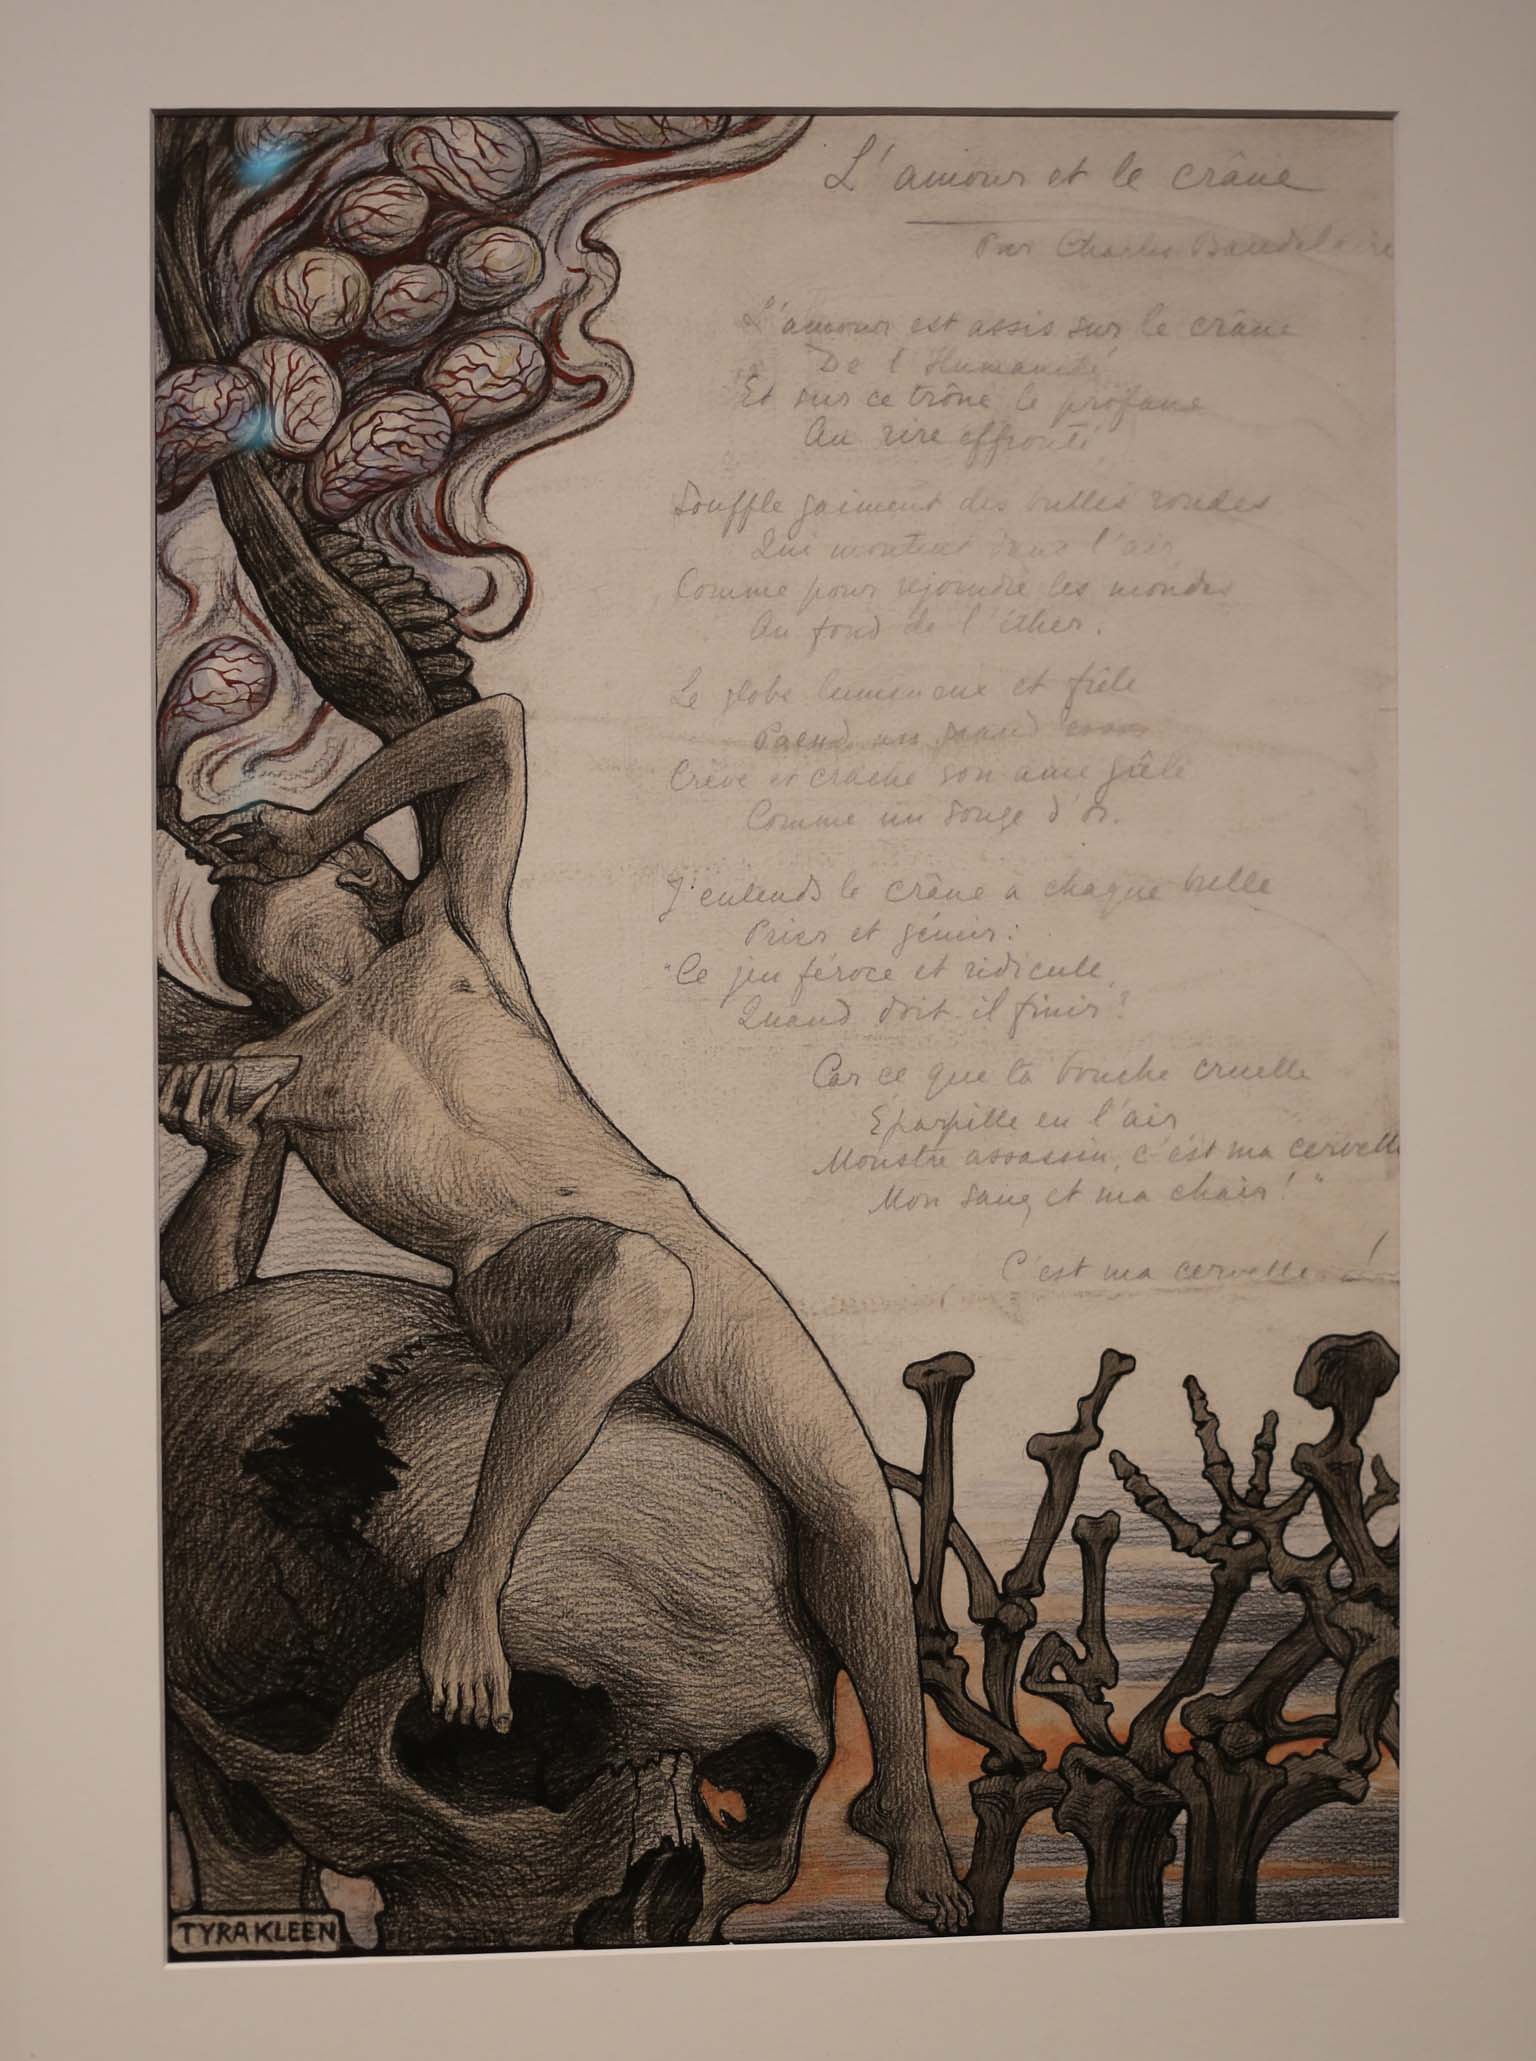 L'amour et le crâne
Par Charles Baudelaire
L'amour est assis sur le crâne
De l'Humanité
Et sur ce trône le profane
Au rire effronté
Souffle gaiment des bulles rondes
Qui montent dans l'air
Comme pour rejoindre les mondes
Au fond de l'éther.
Le globe lumineux et frêle
Prend un grand essor
Crève et crache son âme grêle
Comme un songe d'or.
J'entends le crâne à chaque bulle
Prier et gémir:
"Ce jeu féroce et ridicule,
Quand doit-il finir?
Car ce que ta bouche cruelle
Éparpille en l'air
Monstre assassin, c'est ma cervelle
Mon sang et ma chair!"
C'est ma cervelle
TYRA KLEEN